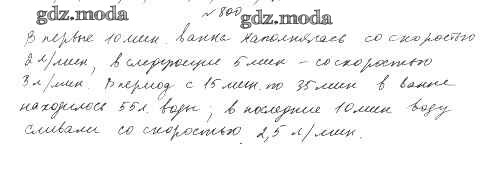 gdz.moda
№ 800
gdz.moda
В первые 10 мин. ванна наполнялась со скоростью
2 л/мин, в следующие 5 мин – со скоростью
3 л/мин. В период с 15 мин. по 35 мин в ванне
находилось 55 л. воды; в последние 10 мин воду
сливали со скоростью 2,5 л/мин.